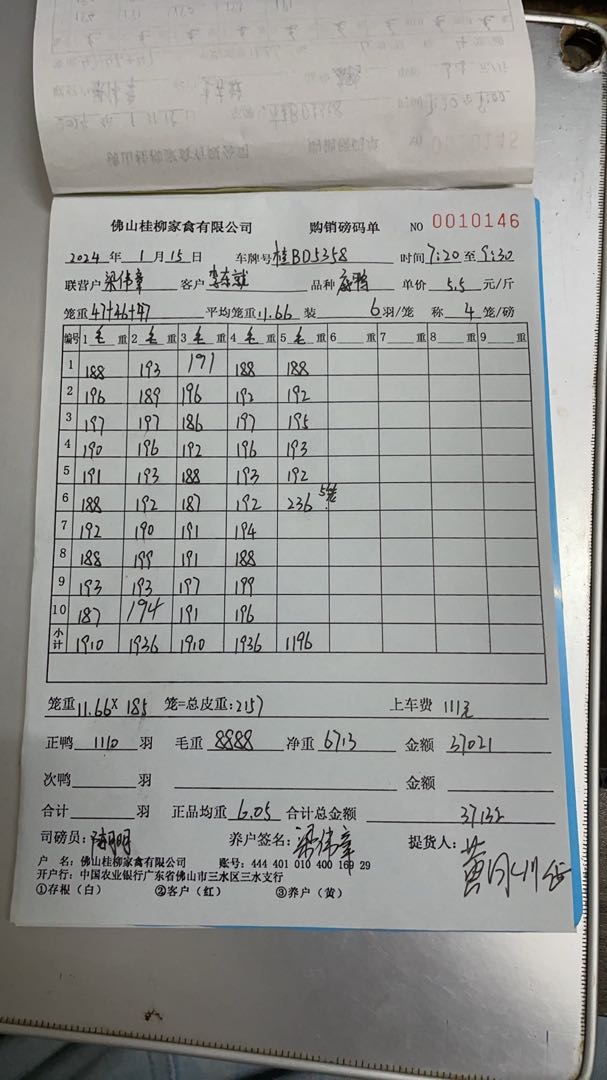 佛山桂柳家禽有限公司 购销磅码单 NO 0010146
2024 年 1 月 15 日 车牌号 桂BD5358 时间 7:20 至 9:30
联营户 梁伟章 客户 品种 单价 5.5 元/斤
笼重 47+46+47 平均笼重 11.66 装 6 羽/笼 称 4 笼/磅
编号 1 毛 重 2 毛 重 3 毛 重 4 毛 重 5 毛 重 6 重 7 重 8 重 9 重
1 188 193 191 188 188
2 196 189 196 192 192
3 197 197 186 197 195
4 190 196 192 196 193
5 191 193 188 193 192
6 188 192 187 192 236 5笼
7 192 190 191 194
8 188 199 191 188
9 193 193 197 199
10 187 194 191 196
小计 1910 1936 1910 1936 1196
笼重 11.66 X 185 笼=总皮重: 2157 上车费 111元
正鸭 1110 羽 毛重 8888 净重 6713 金额 37021
次鸭 羽 金额
合计 羽 正品均重 6.05 合计总金额 37132
司磅员: 养户签名: 梁伟章 提货人:
户 名: 佛山桂柳家禽有限公司 账号: 444 401 010 400 169 29
开户行: 中国农业银行广东省佛山市三水区三水支行
①存根（白） ②客户（红） ③养户（黄）